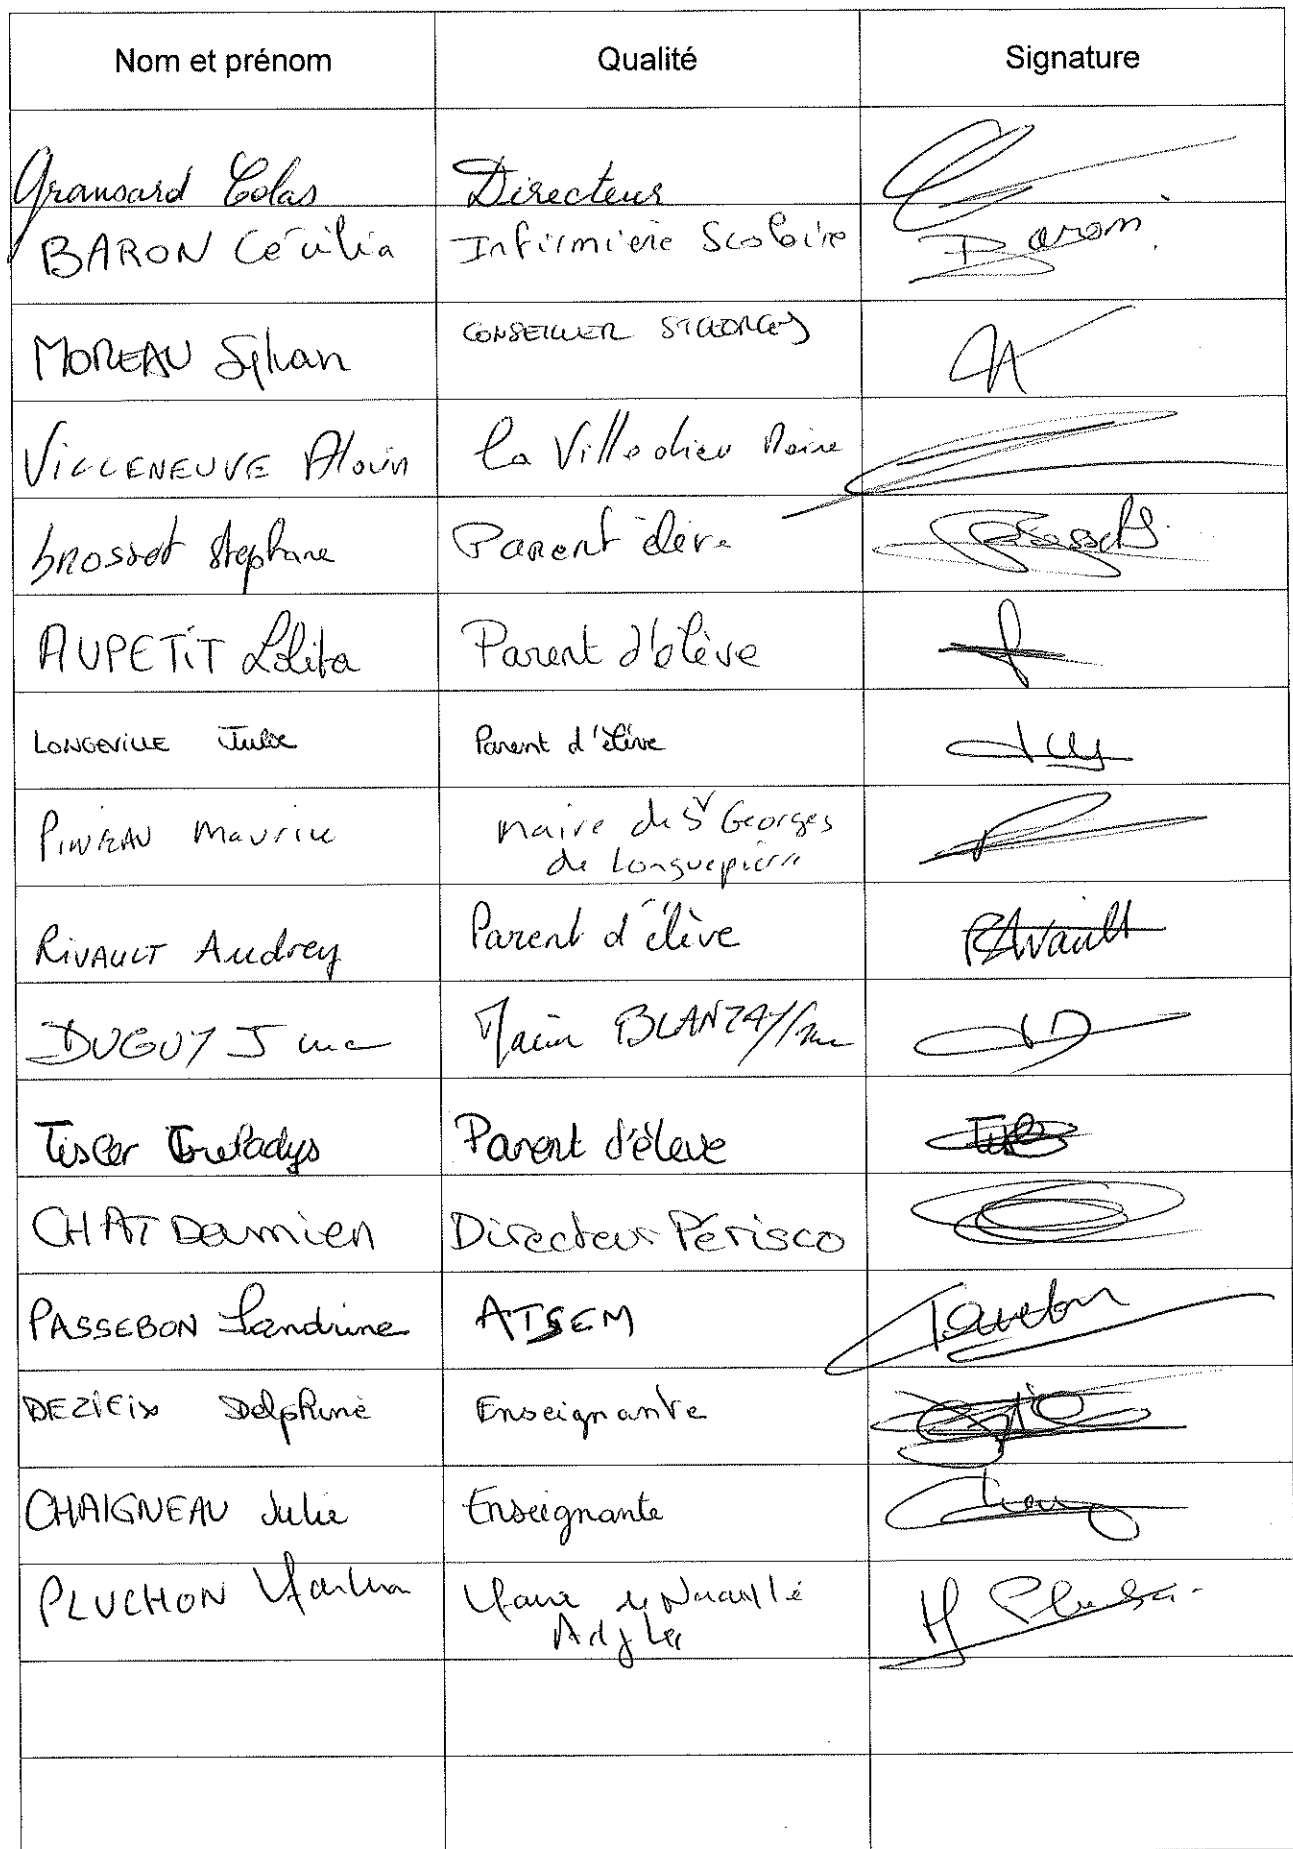 Nom et prénom Qualité Signature
Gransard Colas Directeur
BARON Cécilia Infirmière Scolaire Baron
MOREAU Sylvain CONSEILLER ST GEORGES
VILLENEUVE Alain La Villedieu Maire
brosset stephane Parent élève
AUPETIT Lolita Parent d'élève
LONGEVILLE Julie Parent d'élève
PINEAU Maurice maire de St Georges
de Longuepierre
RIVAULT Audrey Parent d'élève RAvault
DUGUY J Maire BLANZAY
Tisler Parent d'éleve
CHAT Damien Directeur Périsco
PASSEBON Sandrine ATSEM
DEZIEIX Delphine Enseignante
CHAIGNEAU Julie Enseignante
PLUCHON Maire de